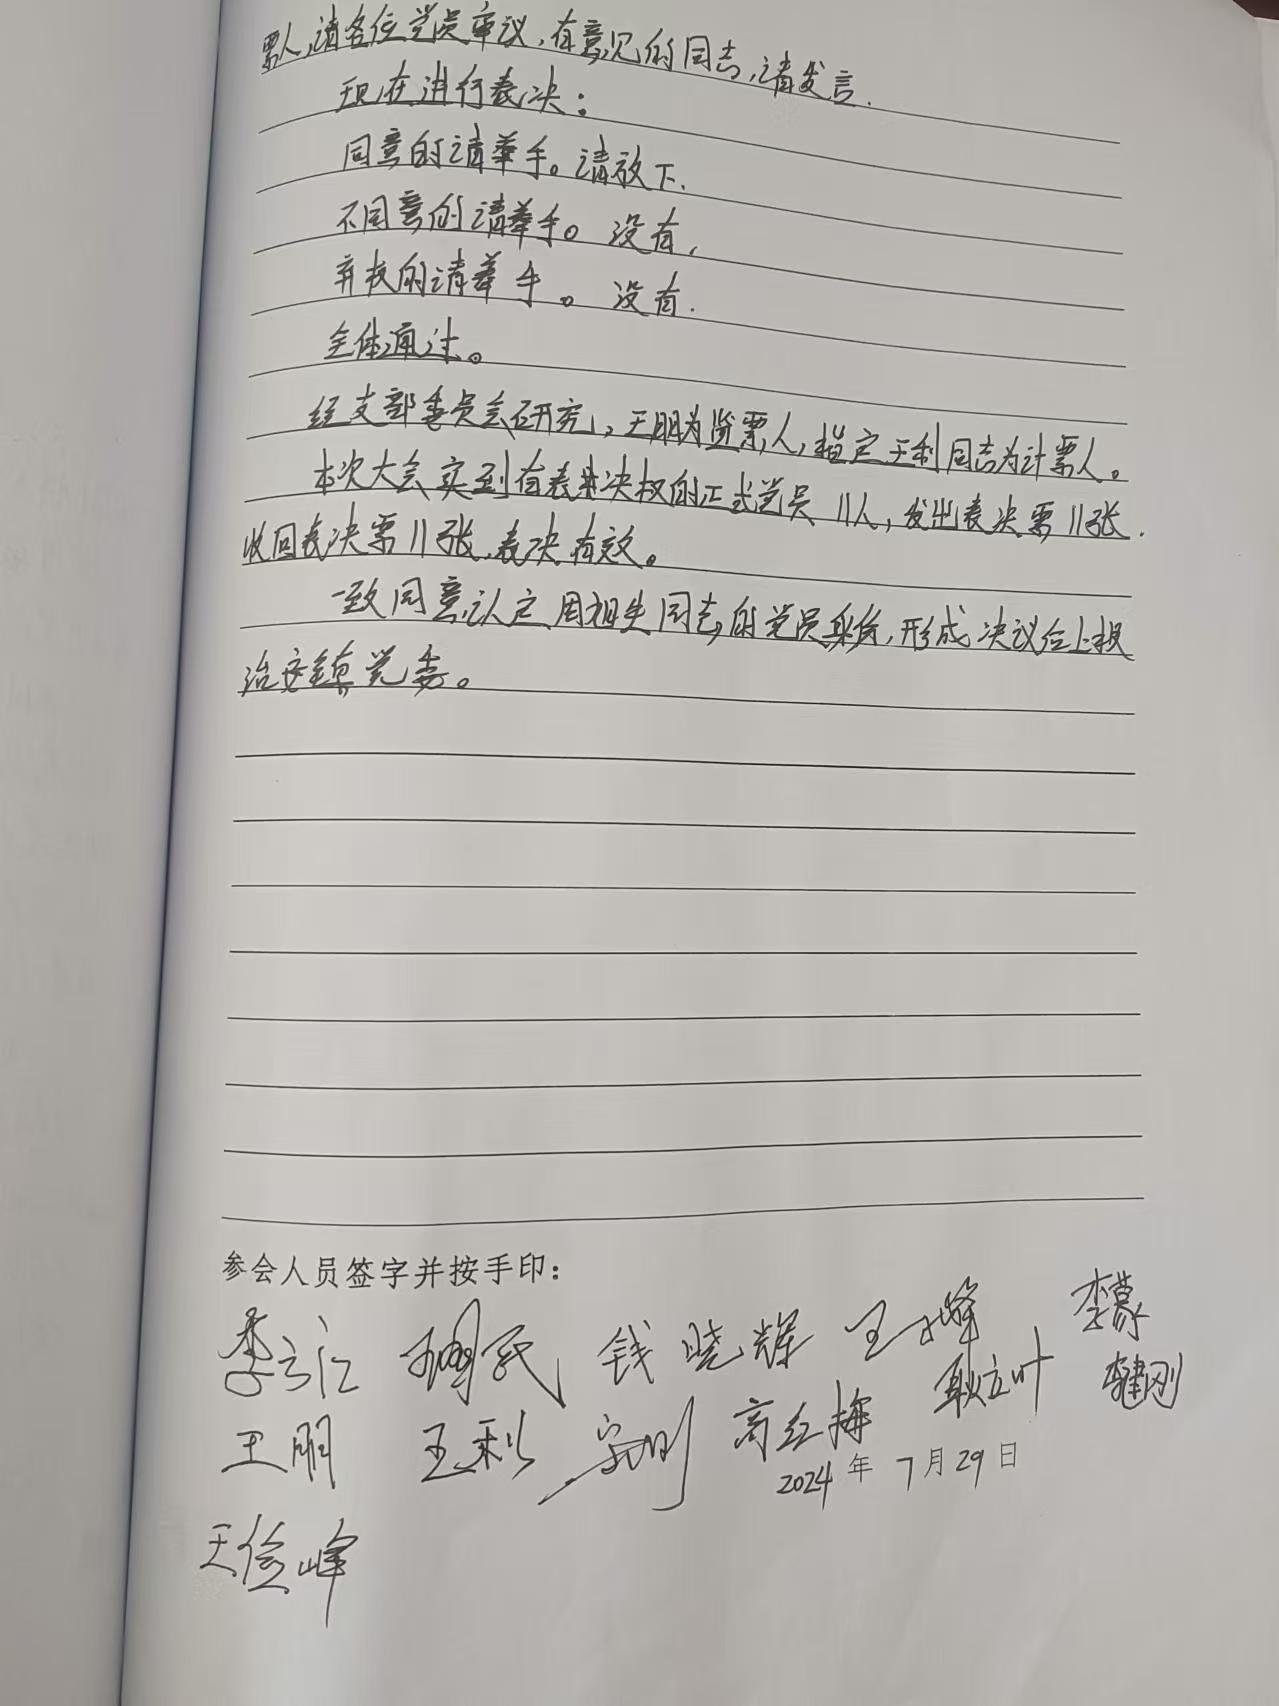 票人,请各位党员审议,有意见的同志,请发言.
现在进行表决:
同意的请举手。请放下.
不同意的请举手。没有.
弃权的请举手。没有.
全体通过。
经支部委员会研究,王朋为监票人,指定王利同志为计票人。
本次大会实到有表决权的正式党员11人,发出表决票11张.
收回表决票11张,表决有效。
一致同意认定同志的党员身份,形成决议后上报
治安镇党委。
参会人员签字并按手印:
李云江 钱晓辉 王峰 李蒙
王朋 王利 高红梅 耿立叶 李健刚
2024年7月29日
王俊峰